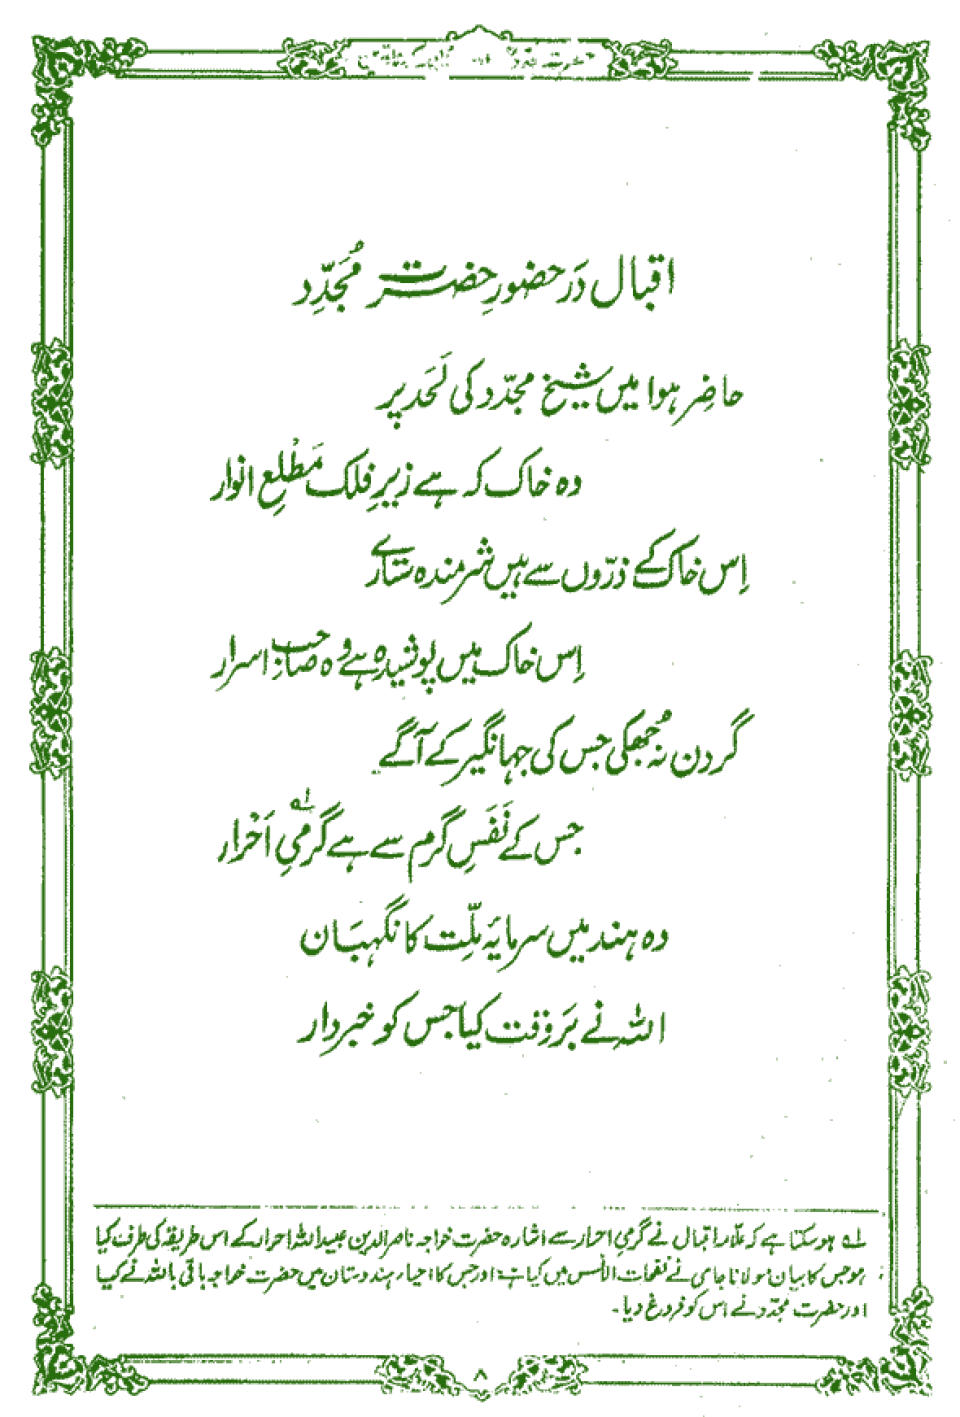 اقبال دَر حضورِ حضرت مُجَدِّد
حاضِر ہوا میں شیخ مجدّد کی لَحَد پر
وہ خاک کہ ہے زیرِ فلک مَطْلعِ انوار
اِس خاک کے ذرّوں سے ہیں شرمندہ ستارے
اِس خاک میں پوشیدہ ہے وہ صاحبِ اسرار
گردن نہ جُھکی جس کی جہانگیر کے آگے
جس کے نَفَسِ گرم سے ہے گرمیِ اَحْرار ؎۱
وہ ہند میں سرمایۂ مِلّت کا نگہبَان
اللہ نے بَروَقت کیا جس کو خبردار
؎۱ ہو سکتا ہے کہ علّامہ اقبال نے گرمیِ احرار سے اشارہ حضرت خواجہ ناصر الدین عبیداللہ احرار کے اس طریقہ کی طرف کیا
ہو جس کا بیان مولانا جامی نے نفحات الانس میں کیا ہے اور جس کا احیاء ہندوستان میں حضرت خواجہ باقی باللہ نے کیا
اور حضرت مجدّد نے اس کو فروغ دیا۔
۸